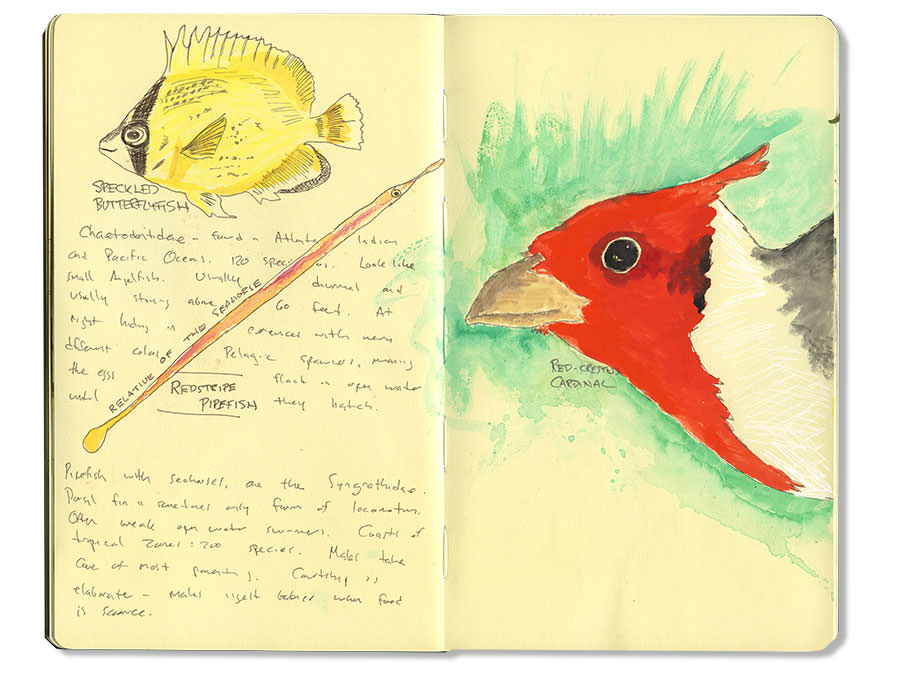 SPECKLED
BUTTERFLYFISH
Chaetodontidae – found in Atlantic, Indian
and Pacific Oceans. 120 species. Look like
small Angelfish. Usually diurnal and
usually stay above 60 feet. At
night hiding in crevices with
different color. Pelagic spawners,
the eggs float in open water
until they hatch.
RELATIVE OF THE SEAHORSE
REDSTRIPE
PIPEFISH
Pipefish with seahorses, are the Syngnathidae.
Dorsal fin is sometimes only form of locomotion.
Often weak open water swimmers. Coasts of
tropical zones: 200 species. Males take
care of most parenting. Courtship is
elaborate – males when food
is scarce.
RED-CRESTED
CARDINAL